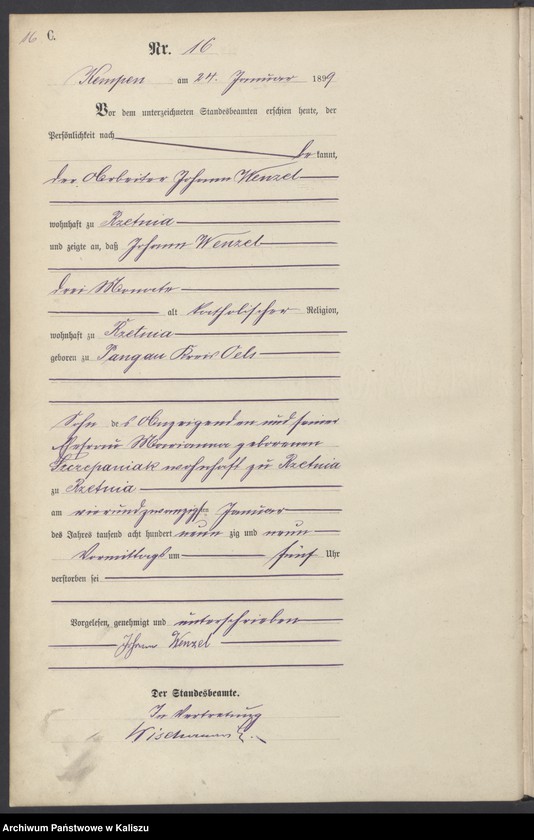 16 C.
Nr. 16
Kempen am 24. Januar 1899
Vor dem unterzeichneten Standesbeamten erschien heute, der
Persönlichkeit nach
be kannt,
der Arbeiter Johann Wenzel
wohnhaft zu Rzetnia
und zeigte an, daß Johann Wenzel
drei Monate
alt katholischer Religion,
wohnhaft zu Rzetnia
geboren zu Pangau Kreis Oels
Sohn des Anzeigenden und seiner
Ehefrau Marianna geborenen
Szczepaniak wohnhaft zu Rzetnia
zu Rzetnia
am vierundzwanzigsten Januar
des Jahres tausend acht hundert neun zig und neun
Vormittags um fünf Uhr
verstorben sei
Vorgelesen, genehmigt und unterschrieben
Johann Wenzel
Der Standesbeamte.
In Vertretung
Archiwum Państwowe w Kaliszu